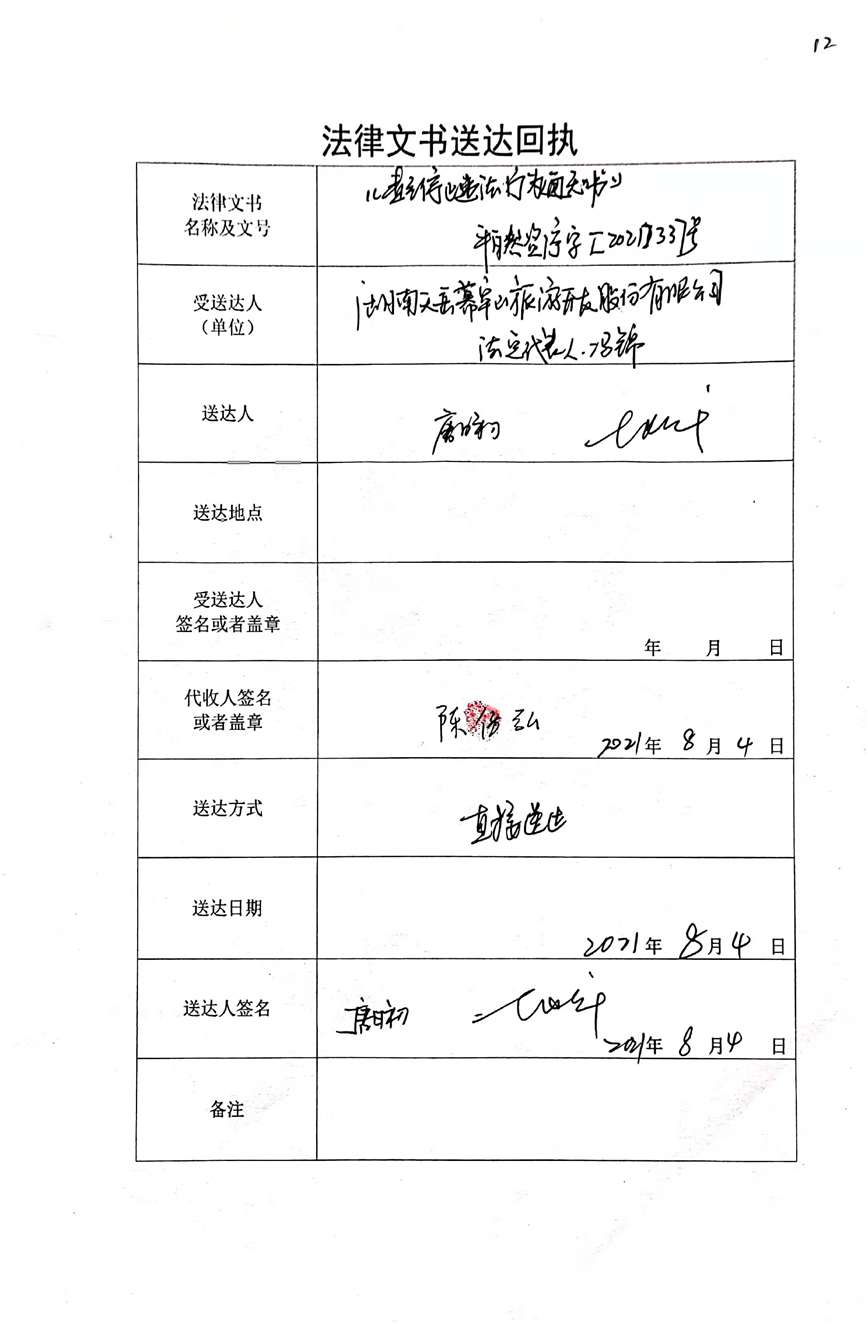 12
法律文书送达回执
法律文书
名称及文号
《责令停止违法行为通知书》
平自然资停字〔2021〕337号
受送达人
(单位)
湖南天岳幕阜山旅游开发股份有限公司
法定代表人:冯锦
送达人
唐日初
送达地点
受送达人
签名或者盖章
年 月 日
代收人签名
或者盖章
陈俊弘
2021年 8 月 4 日
送达方式
直接送达
送达日期
2021年 8月4 日
送达人签名
唐日初
2021年 8 月4 日
备注